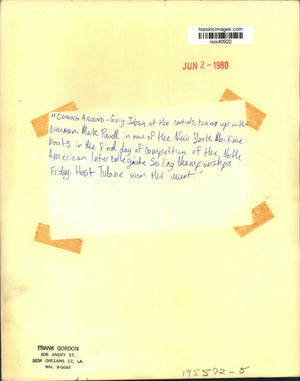 historicimages.com
nox40922
JUN 2 - 1980
"COMING AROUND - Gary Jobson at the controls, teams up with
crewman Mark Powell in one of the New York Maritime
boats in the final day of competition of the North
American Intercollegiate Sailing Championships
Friday. Host Tulane won the event"
FRANK GORDON
806 ANDRY ST.
NEW ORLEANS 17, LA.
WH. 9-5697
195572-5